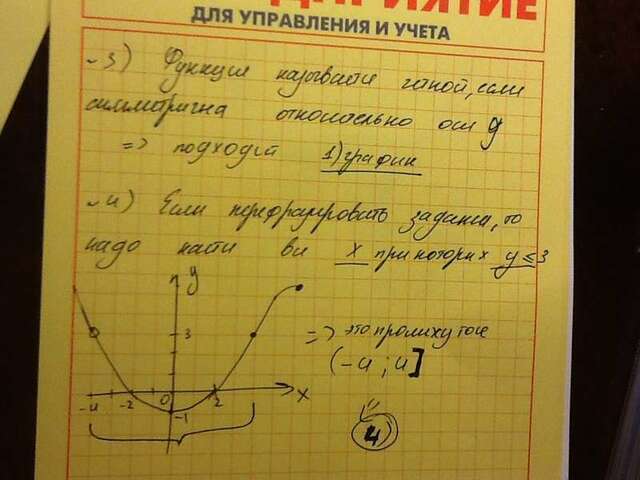 ПРИЯТИЕ
ДЛЯ УПРАВЛЕНИЯ И УЧЕТА
~3) Функция называется четной, если
симметрична относительно оси y
=> подходит 1) график
~4) Если перефразировать задание, то
надо найти все x при которых y ≤ 3
y
3
=> это промежуток
(-4 ; 4]
-4 -2 0 2 x
-1
4